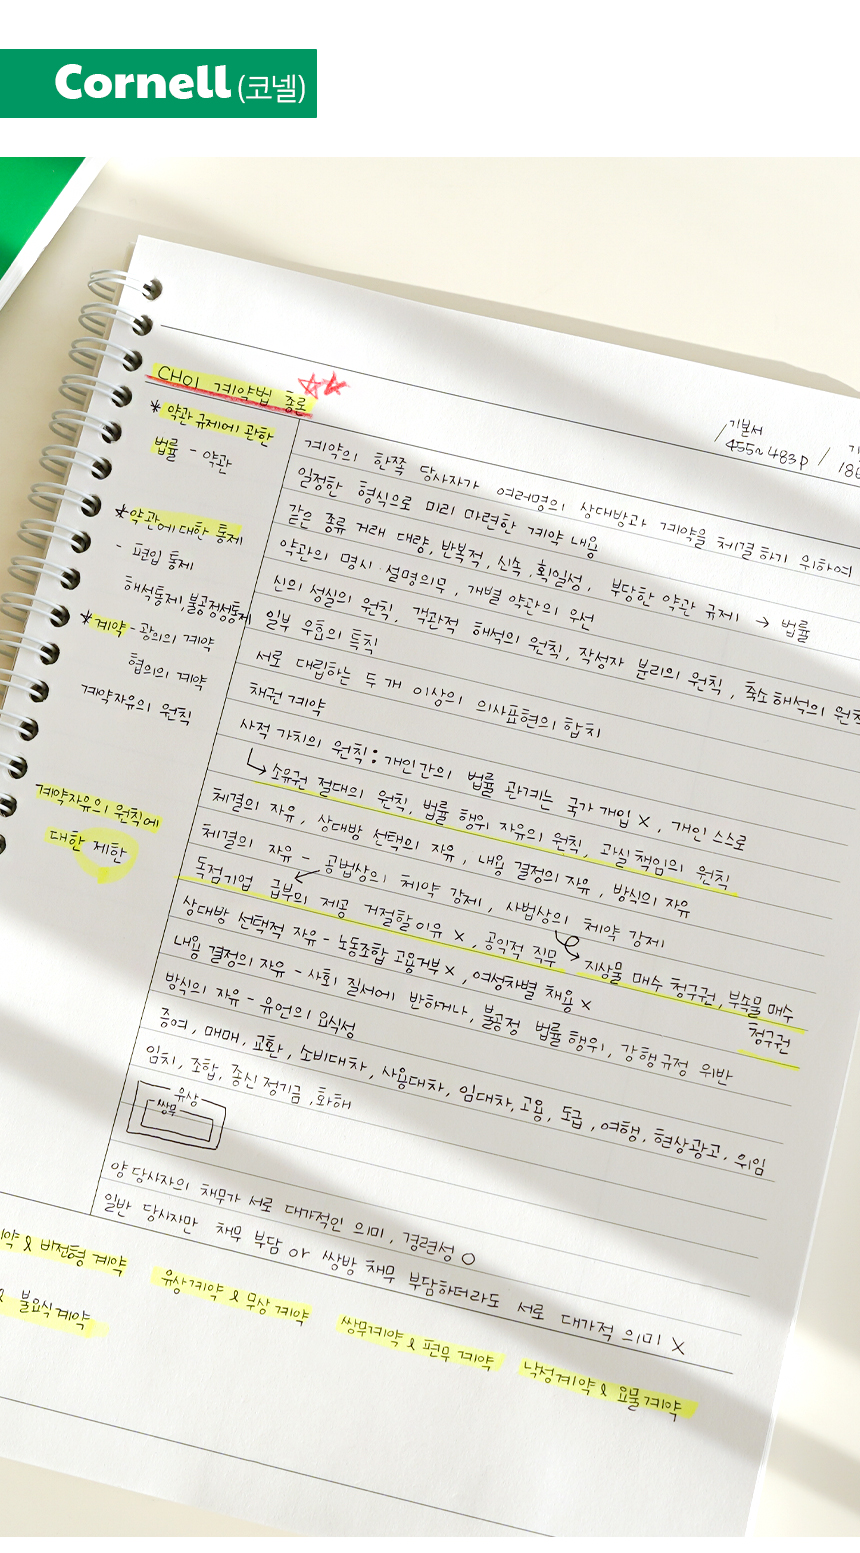 Cornell (코넬)
CH01 계약법 총론
기본서
455~483p /
* 약관 규제에 관한
법률 - 약관
* 약관에 대한 통제
- 편입 통제
해석통제, 불공정성통제
* 계약 - 광의의 계약
협의의 계약
계약자유의 원칙
계약자유의 원칙에
대한 제한
계약의 한쪽 당사자가 여러명의 상대방과 계약을 체결하기 위하여
일정한 형식으로 미리 마련한 계약 내용
같은 종류 거래 대량, 반복적, 신속, 획일성, 부당한 약관 규제 → 법률
약관의 명시·설명의무, 개별 약관의 우선
신의 성실의 원칙, 객관적 해석의 원칙, 작성자 분리의 원칙, 축소해석의 원칙
일부 무효의 특칙
서로 대립하는 두 개 이상의 의사표현의 합치
채권 계약
사적 가치의 원칙 : 개인간의 법률 관계는 국가 개입 X, 개인 스스로
↳ 소유권 절대의 원칙, 법률 행위 자유의 원칙, 과실 책임의 원칙
체결의 자유, 상대방 선택의 자유, 내용 결정의 자유, 방식의 자유
체결의 자유 - 공법상의 체약 강제, 사법상의 체약 강제
독점기업 급부의 제공 거절할 이유 X, 공익적 직무
지상물 매수 청구권, 부속물 매수
청구권
상대방 선택적 자유 - 노동조합 고용거부 X, 여성차별 채용 X
내용 결정의 자유 - 사회 질서에 반하거나, 불공정 법률 행위, 강행규정 위반
방식의 자유 - 유언의 요식성
증여, 매매, 교환, 소비대차, 사용대차, 임대차, 고용, 도급, 여행, 현상광고, 위임
임치, 조합, 종신 정기금, 화해
유상
쌍무
양 당사자의 채무가 서로 대가적인 의미, 견련성 O
일반 당사자만 채무 부담 or 쌍방 채무 부담하더라도 서로 대가적 의미 X
& 비전형 계약
유상계약 & 무상 계약
쌍무계약 & 편무 계약
낙성계약 & 요물계약
불요식계약